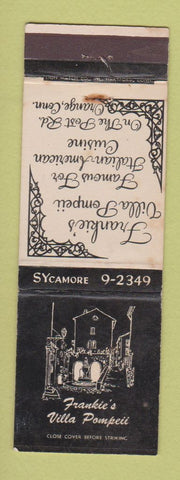 Frankie's
Villa Pompeii
Famous For
Italian-American
Cuisine
On The Post Rd.
Orange, Conn.
SYCAMORE 9-2349
Frankie's
Villa Pompeii
CLOSE COVER BEFORE STRIKING